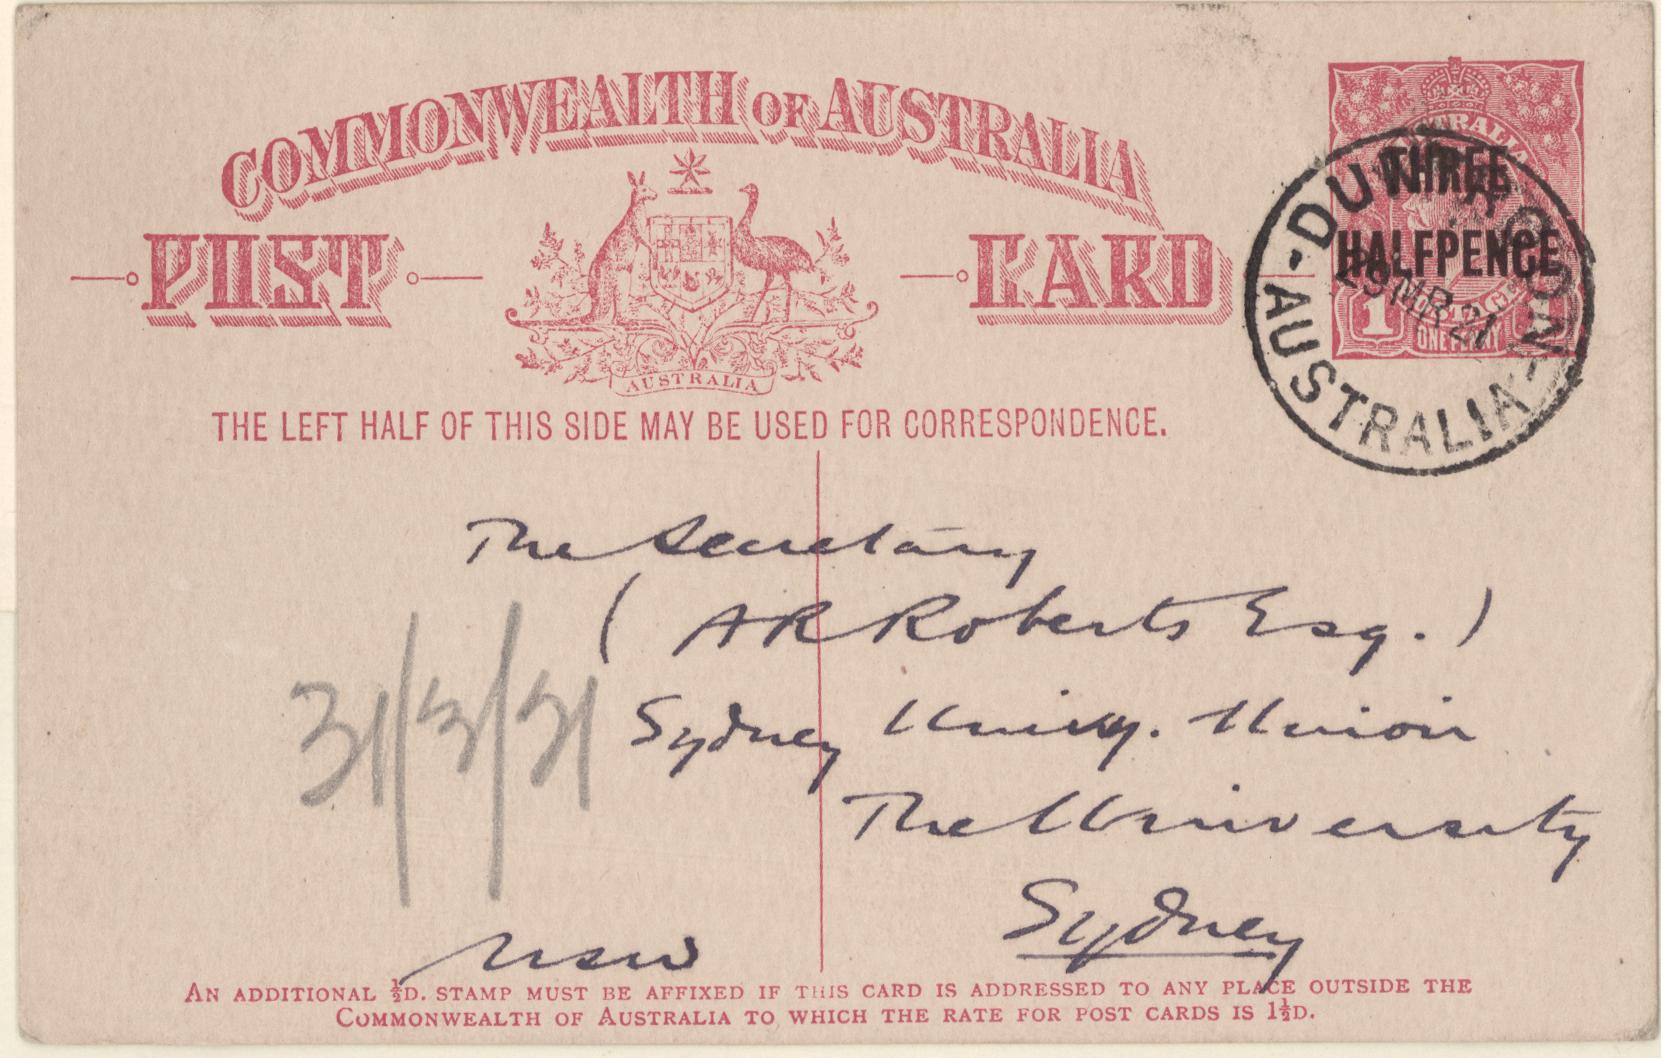 COMMONWEALTH OF AUSTRALIA
POST CARD
AUSTRALIA
THE LEFT HALF OF THIS SIDE MAY BE USED FOR CORRESPONDENCE.
AUSTRALIA
THREE
HALFPENCE
POSTAGE
1 ONE PENNY
DUNTROON
29 MR 21
AUSTRALIA
The Secretary
( A R Roberts Esq. )
Sydney Univy. Union
The University
Sydney
NSW
31/3/21
AN ADDITIONAL ½D. STAMP MUST BE AFFIXED IF THIS CARD IS ADDRESSED TO ANY PLACE OUTSIDE THE
COMMONWEALTH OF AUSTRALIA TO WHICH THE RATE FOR POST CARDS IS 1½D.